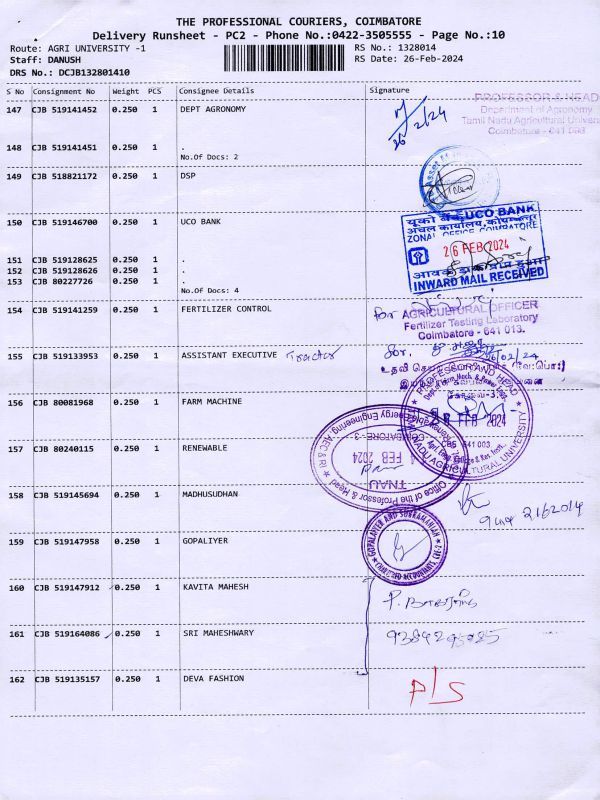 THE PROFESSIONAL COURIERS, COIMBATORE
Delivery Runsheet - PC2 - Phone No.:0422-3505555 - Page No.:10
Route: AGRI UNIVERSITY -1
RS No.: 1328014
Staff: DANUSH
RS Date: 26-Feb-2024
DRS No.: DCJB132801410
S No Consignment No Weight PCS Consignee Details Signature
147 CJB 519141452 0.250 1 DEPT AGRONOMY
26/2/24
PROFESSOR & HEAD
Department of Agronomy
Tamil Nadu Agricultural Univers
Coimbatore - 641 003
148 CJB 519141451 0.250 1 .
No.Of Docs: 2
149 CJB 518821172 0.250 1 DSP
150 CJB 519146700 0.250 1 UCO BANK
यूको बैंक UCO BANK
अंचल कार्यालय, कोयम्बत्तूर
ZONAL OFFICE, COIMBATORE
26 FEB 2024
INWARD MAIL RECEIVED
151 CJB 519128625 0.250 1 .
152 CJB 519128626 0.250 1 .
153 CJB 80227726 0.250 1 .
No.Of Docs: 4
154 CJB 519141259 0.250 1 FERTILIZER CONTROL
for AGRICULTURAL OFFICER
Fertilizer Testing Laboratory
Coimbatore - 641 013.
155 CJB 519133953 0.250 1 ASSISTANT EXECUTIVE Tractor
for.
26/02/24
156 CJB 80081968 0.250 1 FARM MACHINE
PROFESSOR AND HEAD
FEB 2024
641 003
TAMILNADU AGRICULTURAL UNIVERSITY
157 CJB 80240115 0.250 1 RENEWABLE
Office of the Professor & Head
Energy Engineering, AEC & RI
COIMBATORE - 3
FEB 2024
TNAU
158 CJB 519145694 0.250 1 MADHUSUDHAN
159 CJB 519147958 0.250 1 GOPALIYER
GOPALAIYER AND SUBRAMANIAN
CHARTERED ACCOUNTANTS, CBE-2
160 CJB 519147912 0.250 1 KAVITA MAHESH
161 CJB 519164086 0.250 1 SRI MAHESHWARY
162 CJB 519135157 0.250 1 DEVA FASHION
P/S